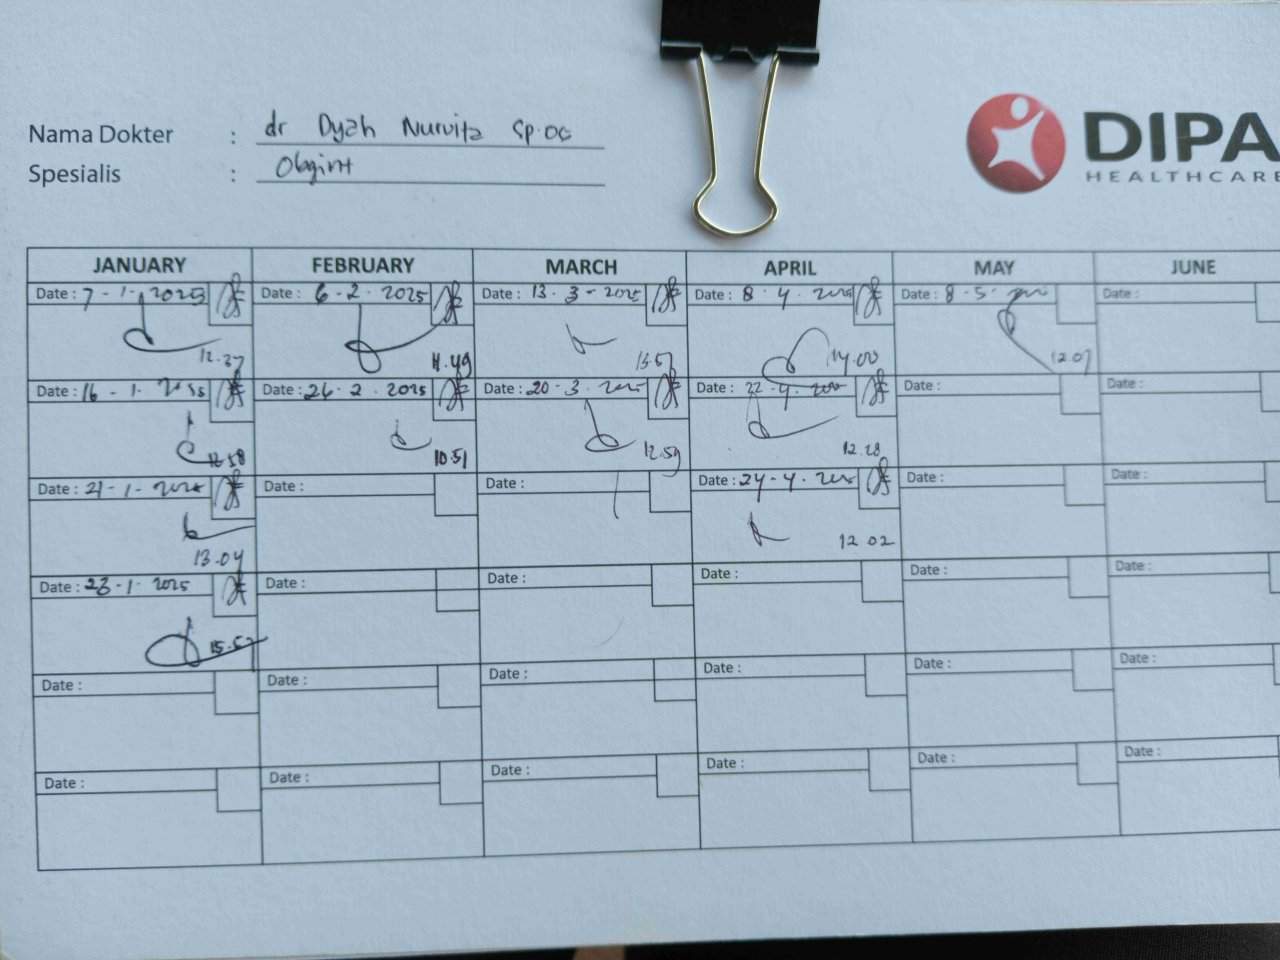 Nama Dokter : dr Dyah Nurvita Sp.OG
Spesialis : Obgin
DIPA
HEALTHCARE
JANUARY FEBRUARY MARCH APRIL MAY JUNE
Date : 7 - 1 - 2025 Date : 6 . 2 . 2025 Date : 13 . 3 - 2025 Date : 8 . 4 . 2025 Date : 8 . 5 . Date :
12.37 11.49 13.57 14.00 12.07
Date : 16 - 1 . 2025 Date : 26 . 2 . 2025 Date : 20 . 3 . 2025 Date : 22 . 4 . 2025 Date : Date :
12.58 10.51 12.59 12.28
Date : 21 - 1 - 2025 Date : Date : Date : 24 - 4 . 2025 Date : Date :
13.04 12.02
Date : 23 - 1 - 2025 Date : Date : Date : Date : Date :
15.57
Date : Date : Date : Date : Date : Date :
Date : Date : Date : Date : Date : Date :